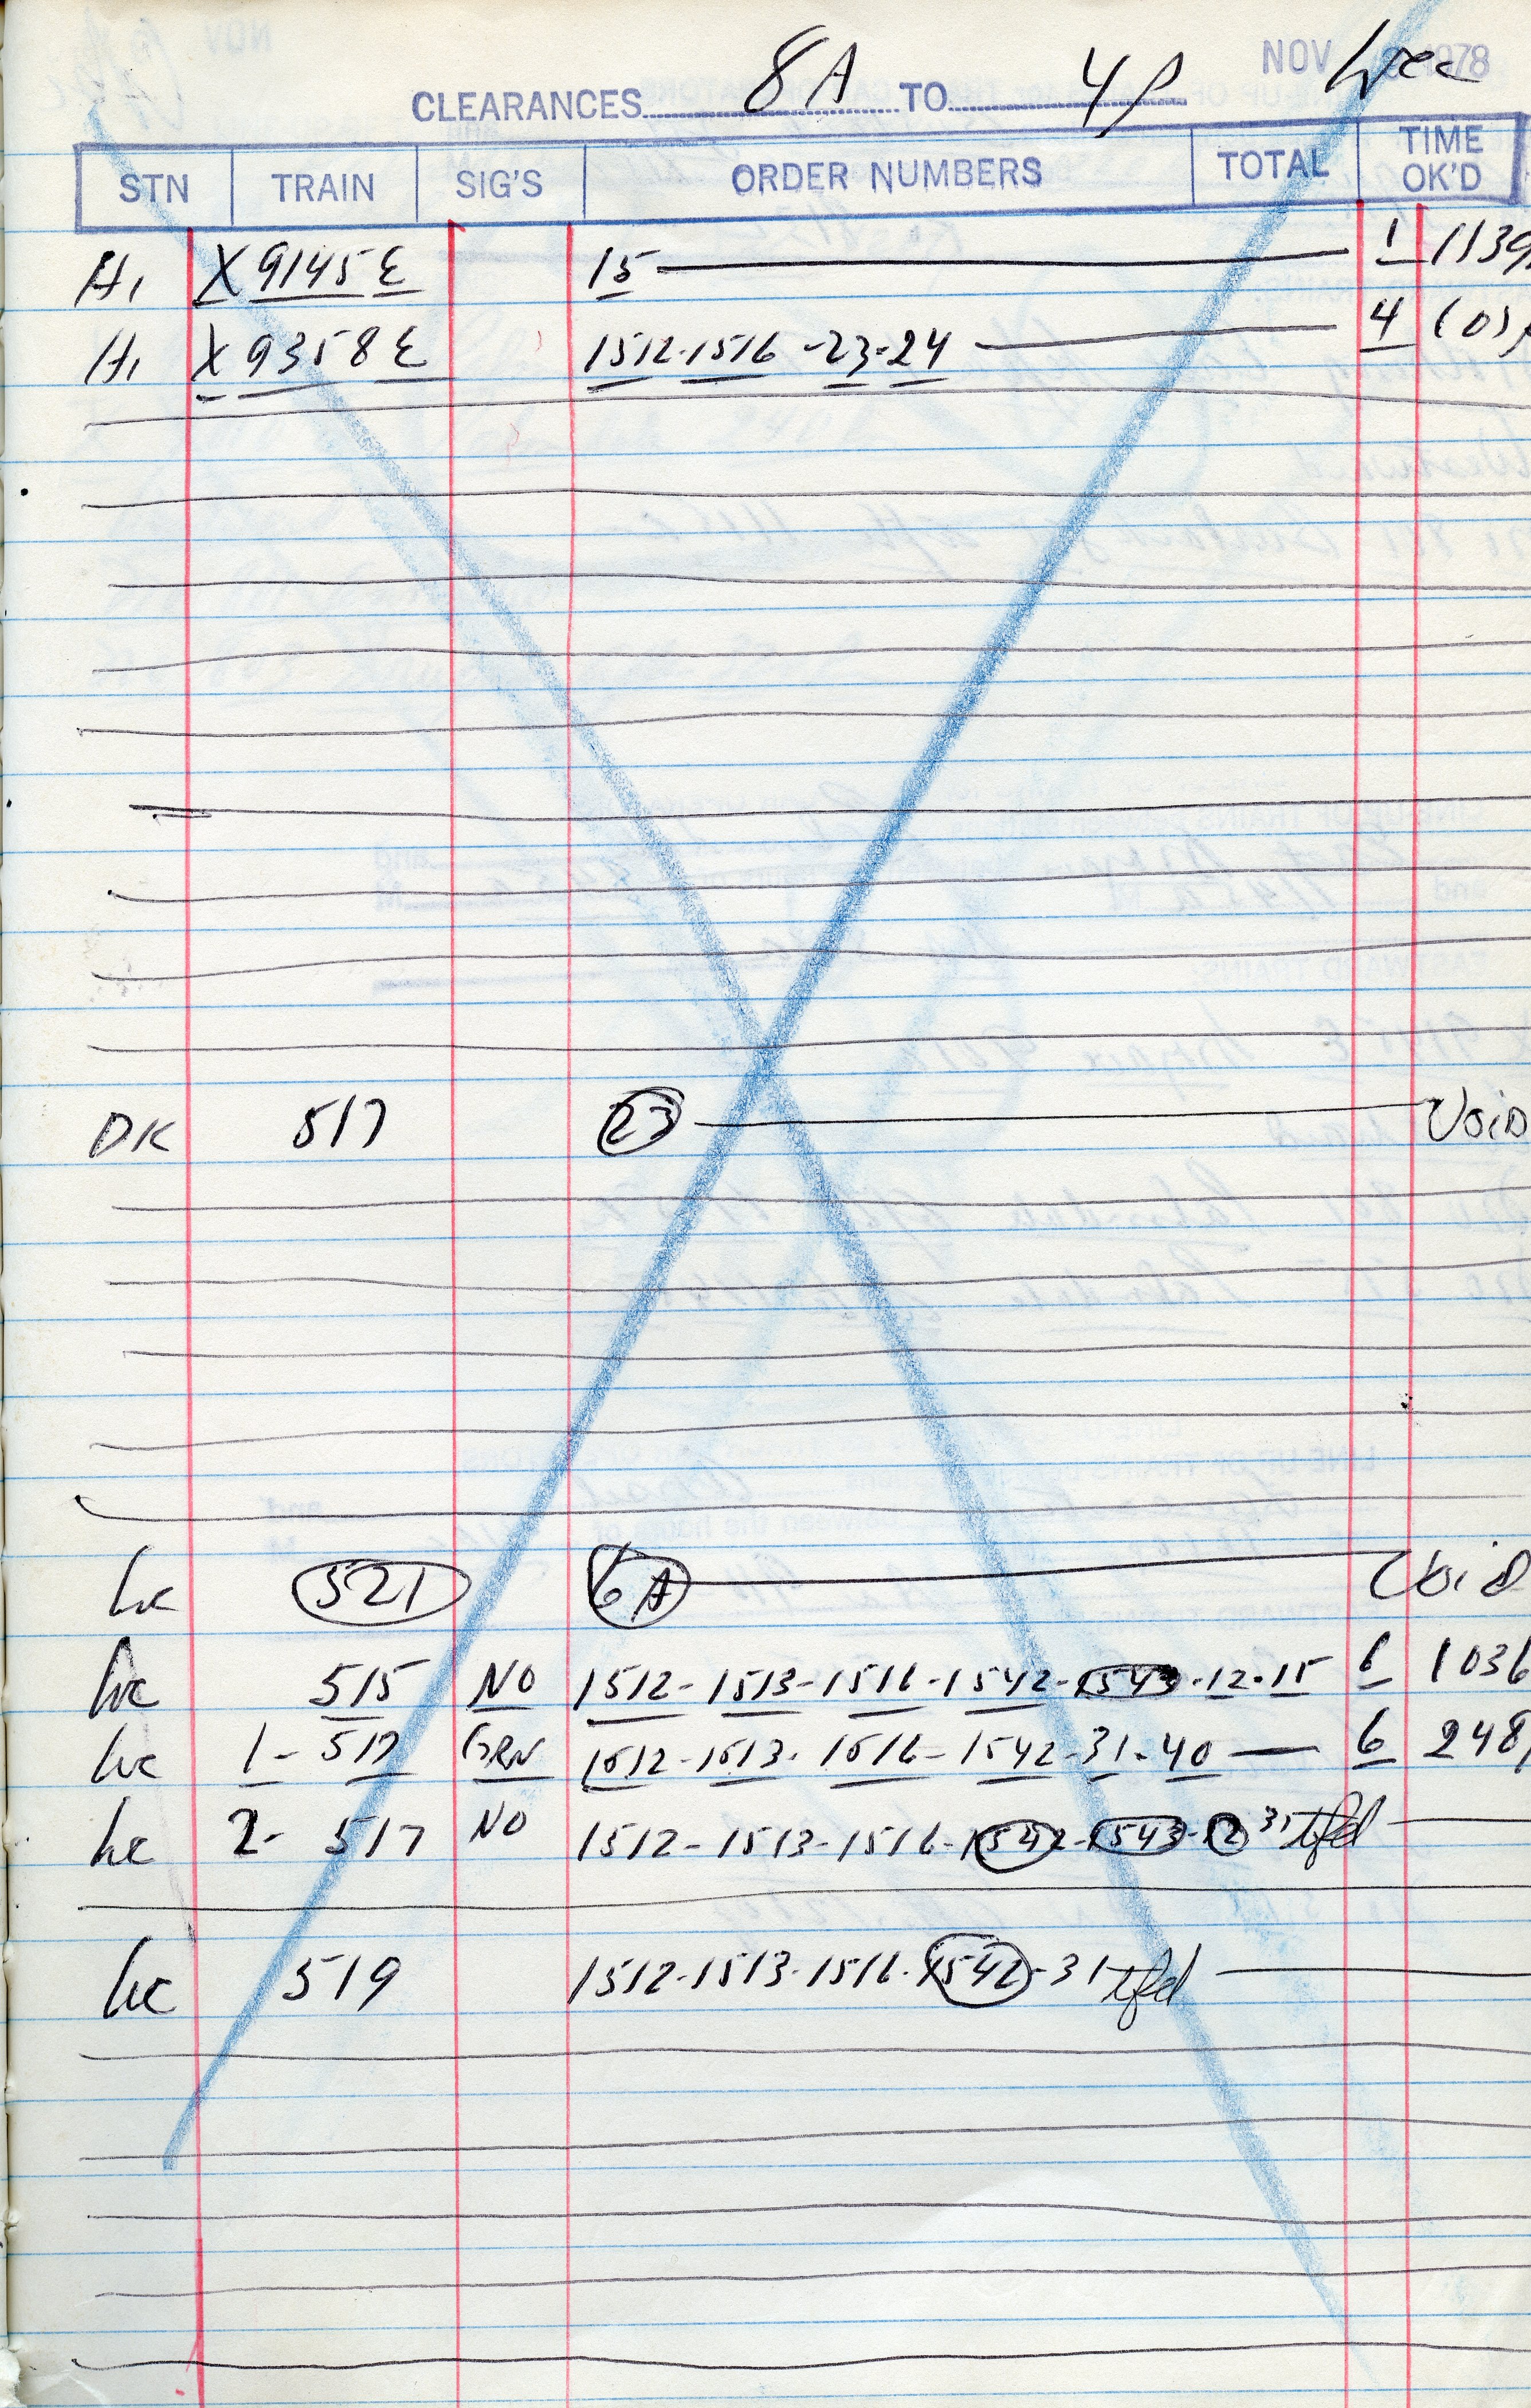 CLEARANCES 8A TO 4P NOV 1978
STN TRAIN SIG'S ORDER NUMBERS TOTAL TIME OK'D
Hi X 9145 E 15 1 1139
Hi X 9358 E 1512-1516-23-24 4 105
DK 517 23 Void
hc 521 6A Void
hc 515 NO 1512-1513-1516-1542-1543-12-15 6 1036
hc 1-517 GRN 1512-1513-1516-1542-31-40 6 248
hc 2-517 NO 1512-1513-1516-1542-1543-12 31 tfd
hc 519 1512-1513-1516-1542-31 tfd